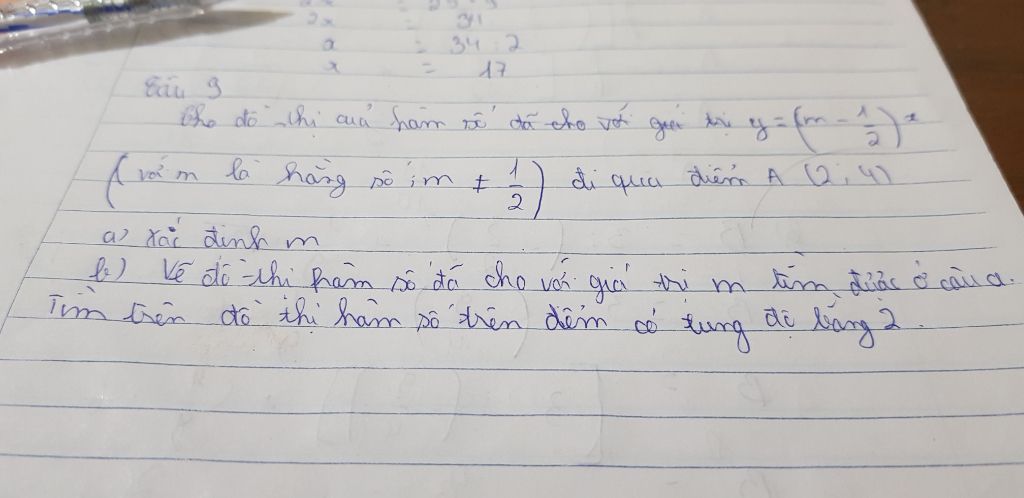 2x = 34
x = 34 : 2
x = 17
Câu 9
Cho đồ thị của hàm số đã cho với giá trị y = (m - 1/2) x
(với m là hằng số ; m ≠ 1/2) đi qua điểm A (2; 4)
a) Xác định m
b) Vẽ đồ thị hàm số đã cho với giá trị m tìm được ở câu a.
Tìm trên đồ thị hàm số trên điểm có tung độ bằng 2.